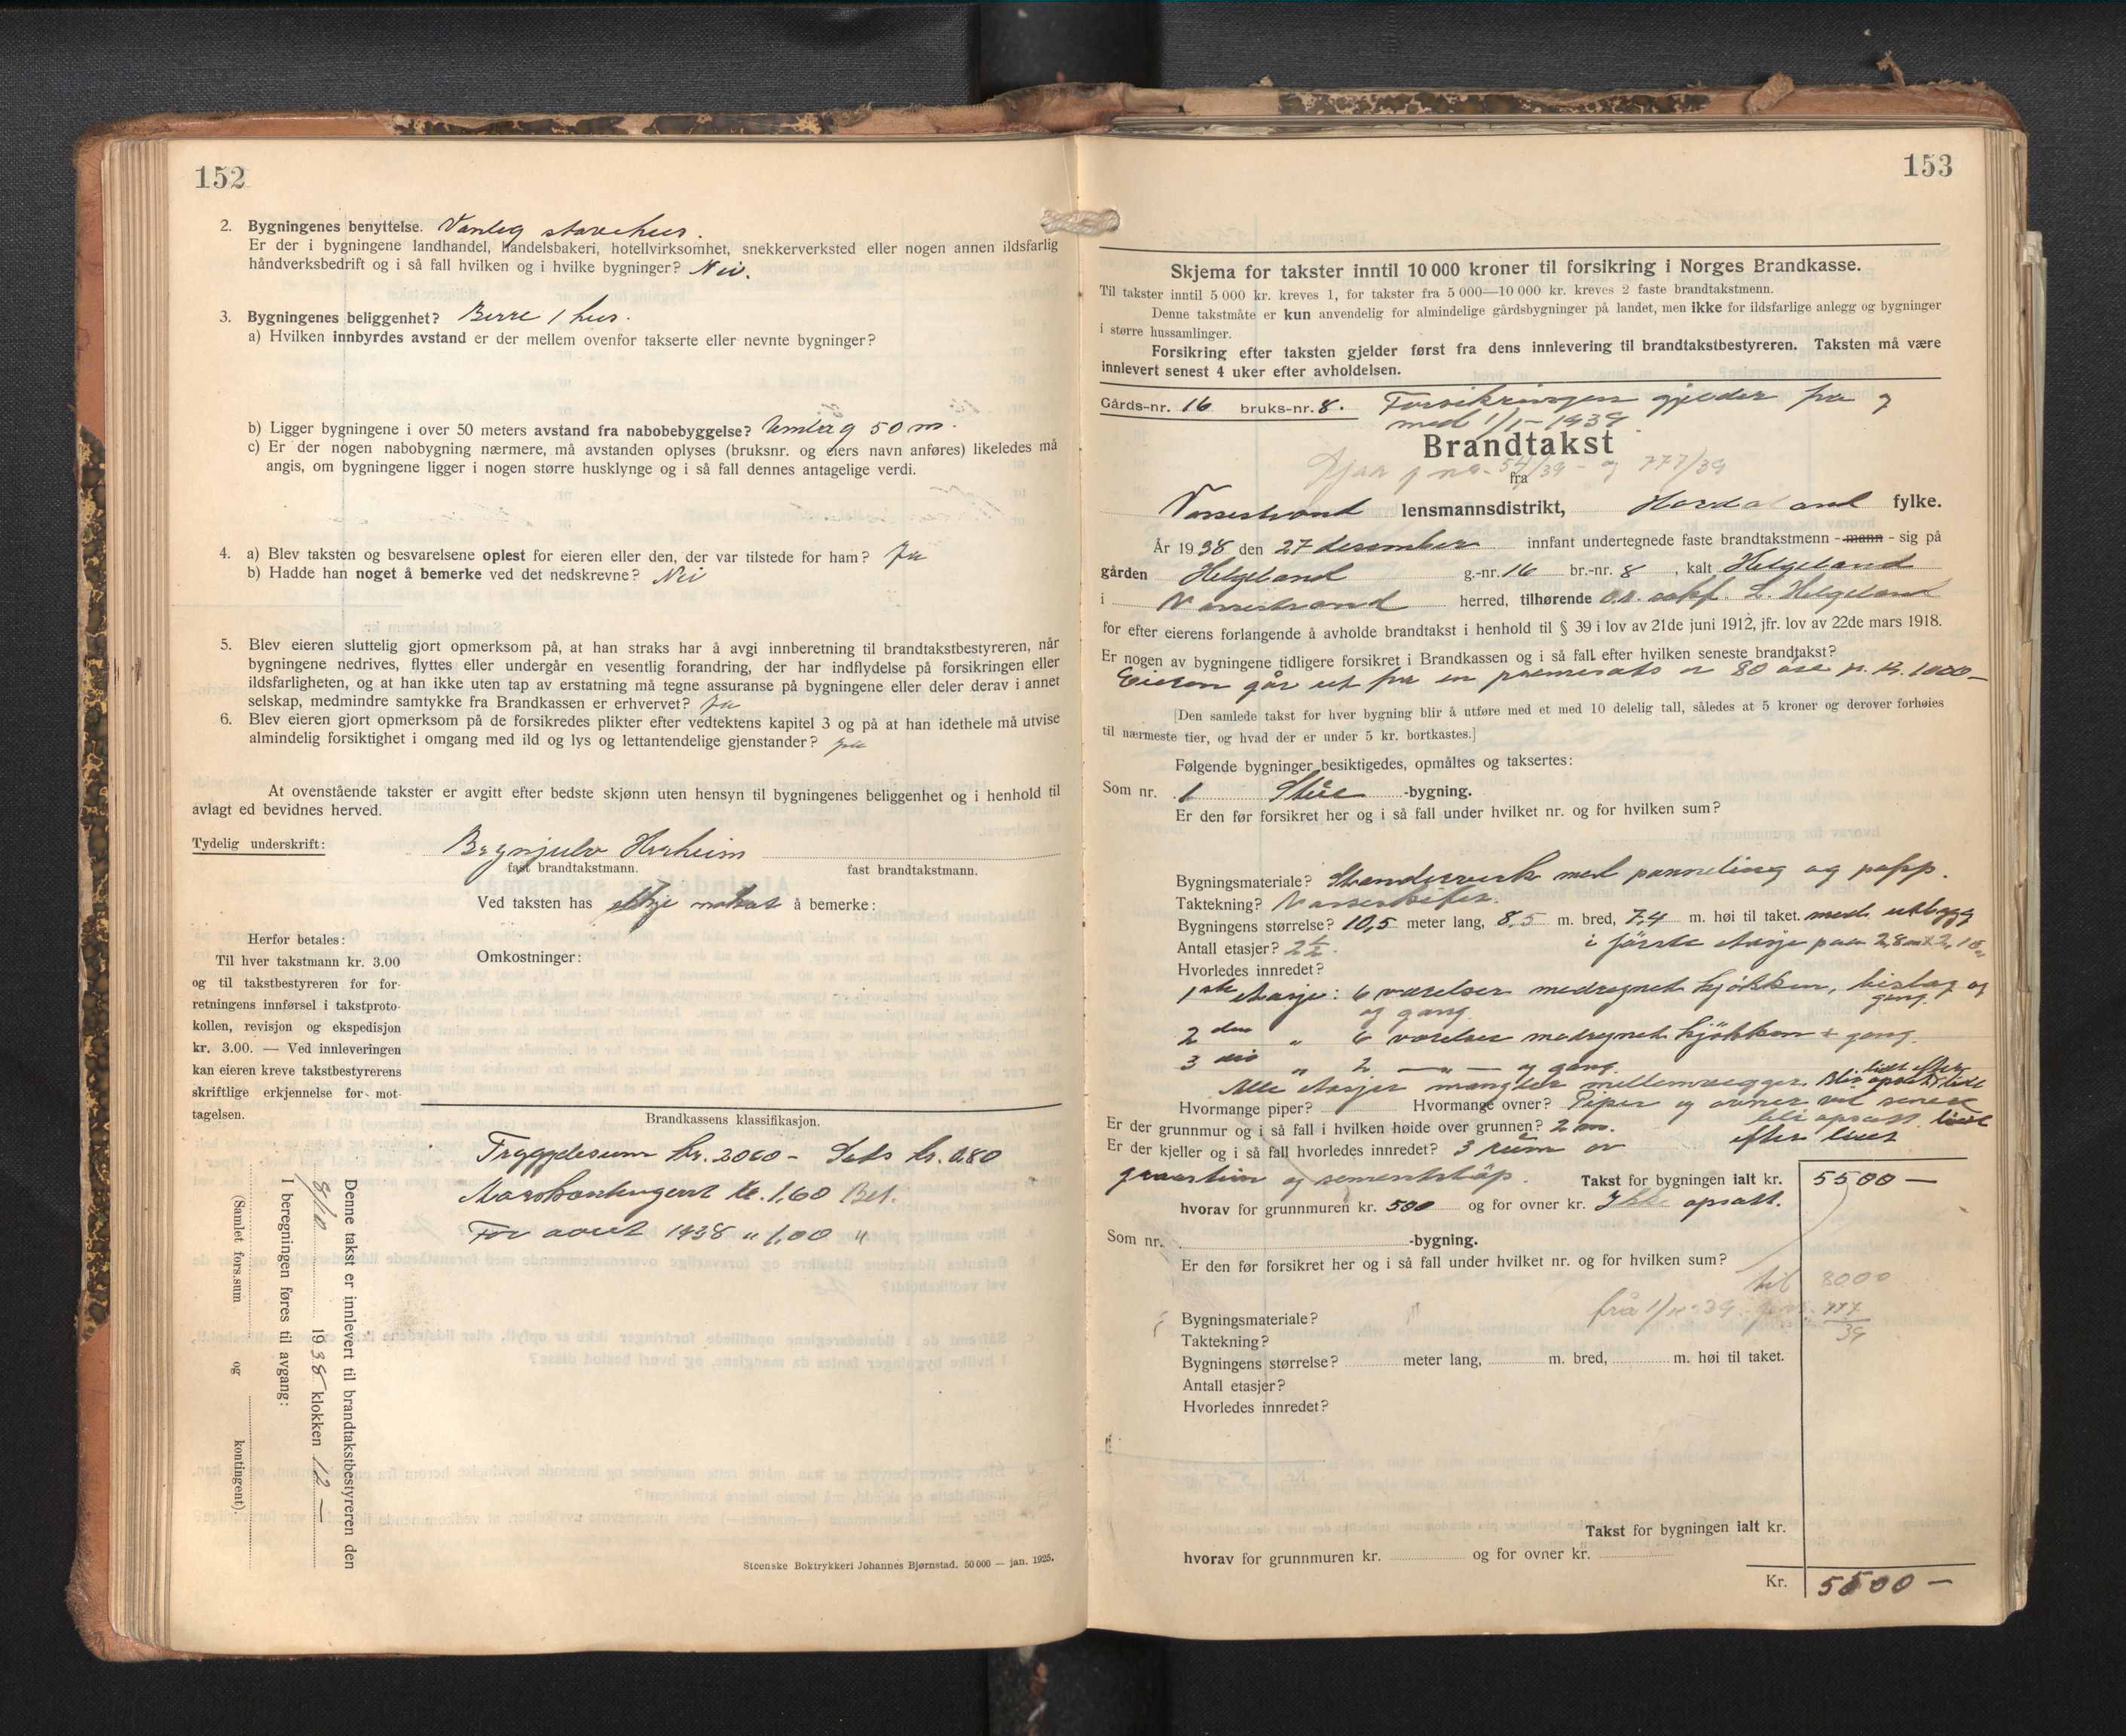 152
2. Bygningenes benyttelse. Vanleg stovehus.
Er der i bygningene landhandel, handelsbakeri, hotellvirksomhet, snekkerverksted eller nogen annen ildsfarlig
håndverksbedrift og i så fall hvilken og i hvilke bygninger? Nei.
3. Bygningenes beliggenhet? Berre 1 hus.
a) Hvilken innbyrdes avstand er der mellem ovenfor takserte eller nevnte bygninger?
b) Ligger bygningene i over 50 meters avstand fra nabobebyggelse? 50 m.
c) Er der nogen nabobygning nærmere, må avstanden oplyses (bruksnr. og eiers navn anføres) likeledes må
angis, om bygningene ligger i nogen større husklynge og i så fall dennes antagelige verdi.
4. a) Blev taksten og besvarelsene oplest for eieren eller den, der var tilstede for ham? Ja
b) Hadde han noget å bemerke ved det nedskrevne? Nei
5. Blev eieren sluttelig gjort opmerksom på, at han straks har å avgi innberetning til brandtakstbestyreren, når
bygningene nedrives, flyttes eller undergår en vesentlig forandring, der har indflydelse på forsikringen eller
ildsfarligheten, og at han ikke uten tap av erstatning må tegne assuranse på bygningene eller deler derav i annet
selskap, medmindre samtykke fra Brandkassen er erhvervet? Ja
6. Blev eieren gjort opmerksom på de forsikredes plikter efter vedtektens kapitel 3 og på at han idethele må utvise
almindelig forsiktighet i omgang med ild og lys og lettantendelige gjenstander? ja
At ovenstående takster er avgitt efter bedste skjønn uten hensyn til bygningenes beliggenhet og i henhold til
avlagt ed bevidnes herved.
Tydelig underskrift: Brynjulv Herheim
fast brandtakstmann. fast brandtakstmann.
Ved taksten has å bemerke:
Omkostninger:
Herfor betales:
Til hver takstmann kr. 3.00
og til takstbestyreren for for-
retningens innførsel i takstproto-
kollen, revisjon og ekspedisjon
kr. 3.00. — Ved innleveringen
kan eieren kreve takstbestyrerens
skriftlige erkjennelse for mot-
tagelsen.
Brandkassens klassifikasjon.
Tryggdesum kr. 2000 - Sats kr. 0.80
kr. 1,60 Bet.
For aaret 1938 " 1,00 "
Denne takst er innlevert til brandtakstbestyreren den
1938 klokken 12 —
I beregningen føres til avgang:
(Samlet fors.sum og kontingent)
Steenske Boktrykkeri Johannes Bjørnstad. 50 000 — jan. 1925.
153
Skjema for takster inntil 10 000 kroner til forsikring i Norges Brandkasse.
Til takster inntil 5 000 kr. kreves 1, for takster fra 5 000—10 000 kr. kreves 2 faste brandtakstmenn.
Denne takstmåte er kun anvendelig for almindelige gårdsbygninger på landet, men ikke for ildsfarlige anlegg og bygninger
i større hussamlinger.
Forsikring efter taksten gjelder først fra dens innlevering til brandtakstbestyreren. Taksten må være
innlevert senest 4 uker efter avholdelsen.
Gårds-nr. 16 bruks-nr. 8. Forsikringen gjelder fra og
med 1/1-1939.
Brandtakst
54/39 - og 777/39
fra
Vossestrand lensmannsdistrikt, Hordaland fylke.
År 1938 den 27 desember innfant undertegnede faste brandtakstmenn - mann - sig på
gården Helgeland g.-nr. 16 br.-nr. 8, kalt Helgeland
i Vossestrand herred, tilhørende L. Helgeland
for efter eierens forlangende å avholde brandtakst i henhold til § 39 i lov av 21de juni 1912, jfr. lov av 22de mars 1918.
Er nogen av bygningene tidligere forsikret i Brandkassen og i så fall efter hvilken seneste brandtakst?
Eieren går ut fra en premiesats er 80 øre pr. kr. 1000-
[Den samlede takst for hver bygning blir å utføre med et med 10 delelig tall, således at 5 kroner og derover forhøies
til nærmeste tier, og hvad der er under 5 kr. bortkastes.]
Følgende bygninger besiktigedes, opmåltes og taksertes:
Som nr. 1 Stue -bygning.
Er den før forsikret her og i så fall under hvilket nr. og for hvilken sum?
Bygningsmateriale? Stenderverk med panneling og papp.
Taktekning? Vosseskifer.
Bygningens størrelse? 10,5 meter lang, 8,5 m. bred, 7,4 m. høi til taket. med utbygg
Antall etasjer? 2 1/2. i første etasje paa 2,8 m x 2,10 m
Hvorledes innredet?
1ste etasje: 6 værelser medregnet kjøkken, bislag og
og gang. gang.
2den " 6 værelser medregnet kjøkken + gang.
3die " 2 — " — og gang.
Alle etasjer mangler mellemvegger. Blir opsatt litt efter litt
Hvormange piper? Hvormange ovner? Piper og ovner vil senere
Er der grunnmur og i så fall i hvilken høide over grunnen? 2 m. bli opsatt litt
Er der kjeller og i så fall hvorledes innredet? 3 rum av efter litt
graastein og sementstøp. Takst for bygningen ialt kr. 5500 —
hvorav for grunnmuren kr. 500 og for ovner kr. Ikke opsatt.
Som nr. -bygning.
Er den før forsikret her og i så fall under hvilket nr. og for hvilken sum?
til 8000
Bygningsmateriale? frå 39 777/39
Taktekning?
Bygningens størrelse? meter lang, m. bred, m. høi til taket.
Antall etasjer?
Hvorledes innredet?
Takst for bygningen ialt kr.
hvorav for grunnmuren kr. og for ovner kr.
Kr. 5500 —